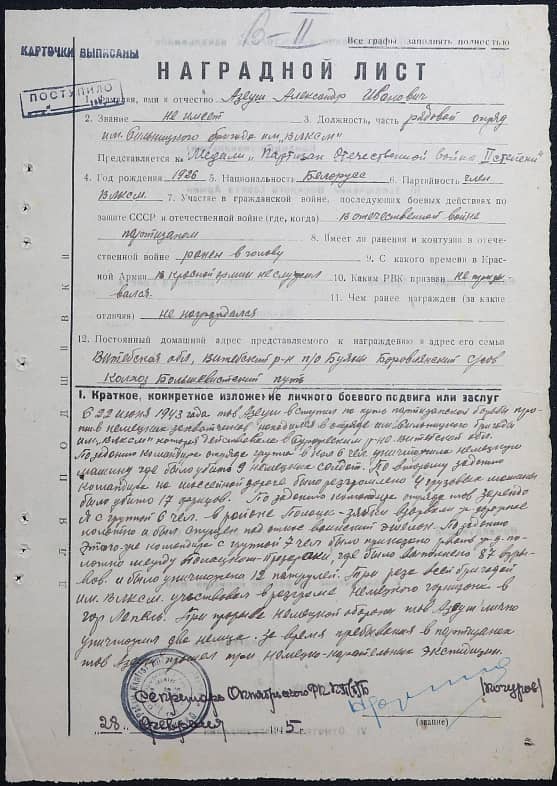 В-11
Все графы заполнять полностью
КАРТОЧКИ ВЫПИСАНЫ
НАГРАДНОЙ ЛИСТ
ПОСТУПИЛО
1. Фамилия, имя и отчество Азеуш Александр Иванович
2. Звание не имеет 3. Должность, часть рядовой отряд
им. бригады им. "ВЛКСМ"
Представляется к Медали "Партизан Отечественной войны II степени"
4. Год рождения 1926 5. Национальность Белорус 6. Партийность член
ВЛКСМ. 7. Участие в гражданской войне, последующих боевых действиях по
защите СССР и отечественной войне (где, когда) в отечественной войне
партизаном 8. Имеет ли ранения и контузии в отече-
ственной войне ранен в голову 9. С какого времени в Крас-
ной Армии в красной армии не служил 10. Каким РВК призван не призы-
вался. 11. Чем ранее награжден (за какие
отличия) не награждался
12. Постоянный домашний адрес представляемого к награждению и адрес его семьи
Витебская обл, Витебский р-н п/о Буяны Боровлянский с/сов
Колхоз Большевистский путь
I. Краткое, конкретное изложение личного боевого подвига или заслуг
С 22 июня 1943 года тов Азеуш вступил на путь партизанской борьбы про-
тив немецких захватчиков находился в отряде бригады
им. "ВЛКСМ" который действовал в р-не Витебской обл.
По заданию командира отряда группа в кол 6 чел. уничтожила немецкую
машину где было убито 9 немецких солдат. По второму заданию
командира на шоссейной дороге было разгромлено 4 грузовых машины
было убито 17 фрицов. По заданию командира отряда тов
с группой 6 чел. в районе Полоцк- взорвали ж-дорожное
полотно и был спущен под откос воинский эшелон. По заданию
этого же командира с группой 7 чел было приказано рвать ж.д. по-
лотно между Полоцком- где было выполнено 87 взры-
вов. и было уничтожено 12 патрулей. При разе всей бригадой
им. ВЛКСМ участвовал в разгроме немецкого гарнизона в
гор Лепель. При прорыве немецкой обороны тов Азеуш лично
уничтожил два немца. за время пребывания в партизанах
тов Азеуш прошел три немецко-карательных экспедиции.
Секретарь Октябрьского РК КП(б)Б
28 февраля 1945 г. (звание)
ДЛЯ ПОДШИВКИ